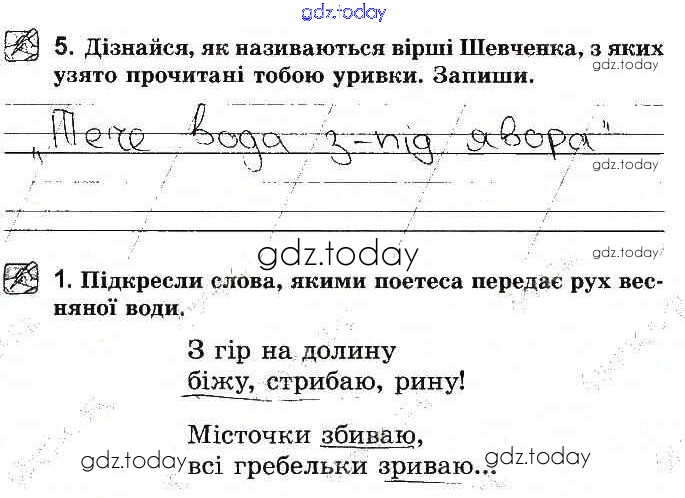 gdz.today
5. Дізнайся, як називаються вірші Шевченка, з яких
gdz.today
узято прочитані тобою уривки. Запиши.
„Тече вода з-під явора"
gdz.today
gdz.today
gdz.today
1. Підкресли слова, якими поетеса передає рух вес-
няної води.
З гір на долину
біжу, стрибаю, рину!
Місточки збиваю,
всі гребельки зриваю...
gdz.today
gdz.today